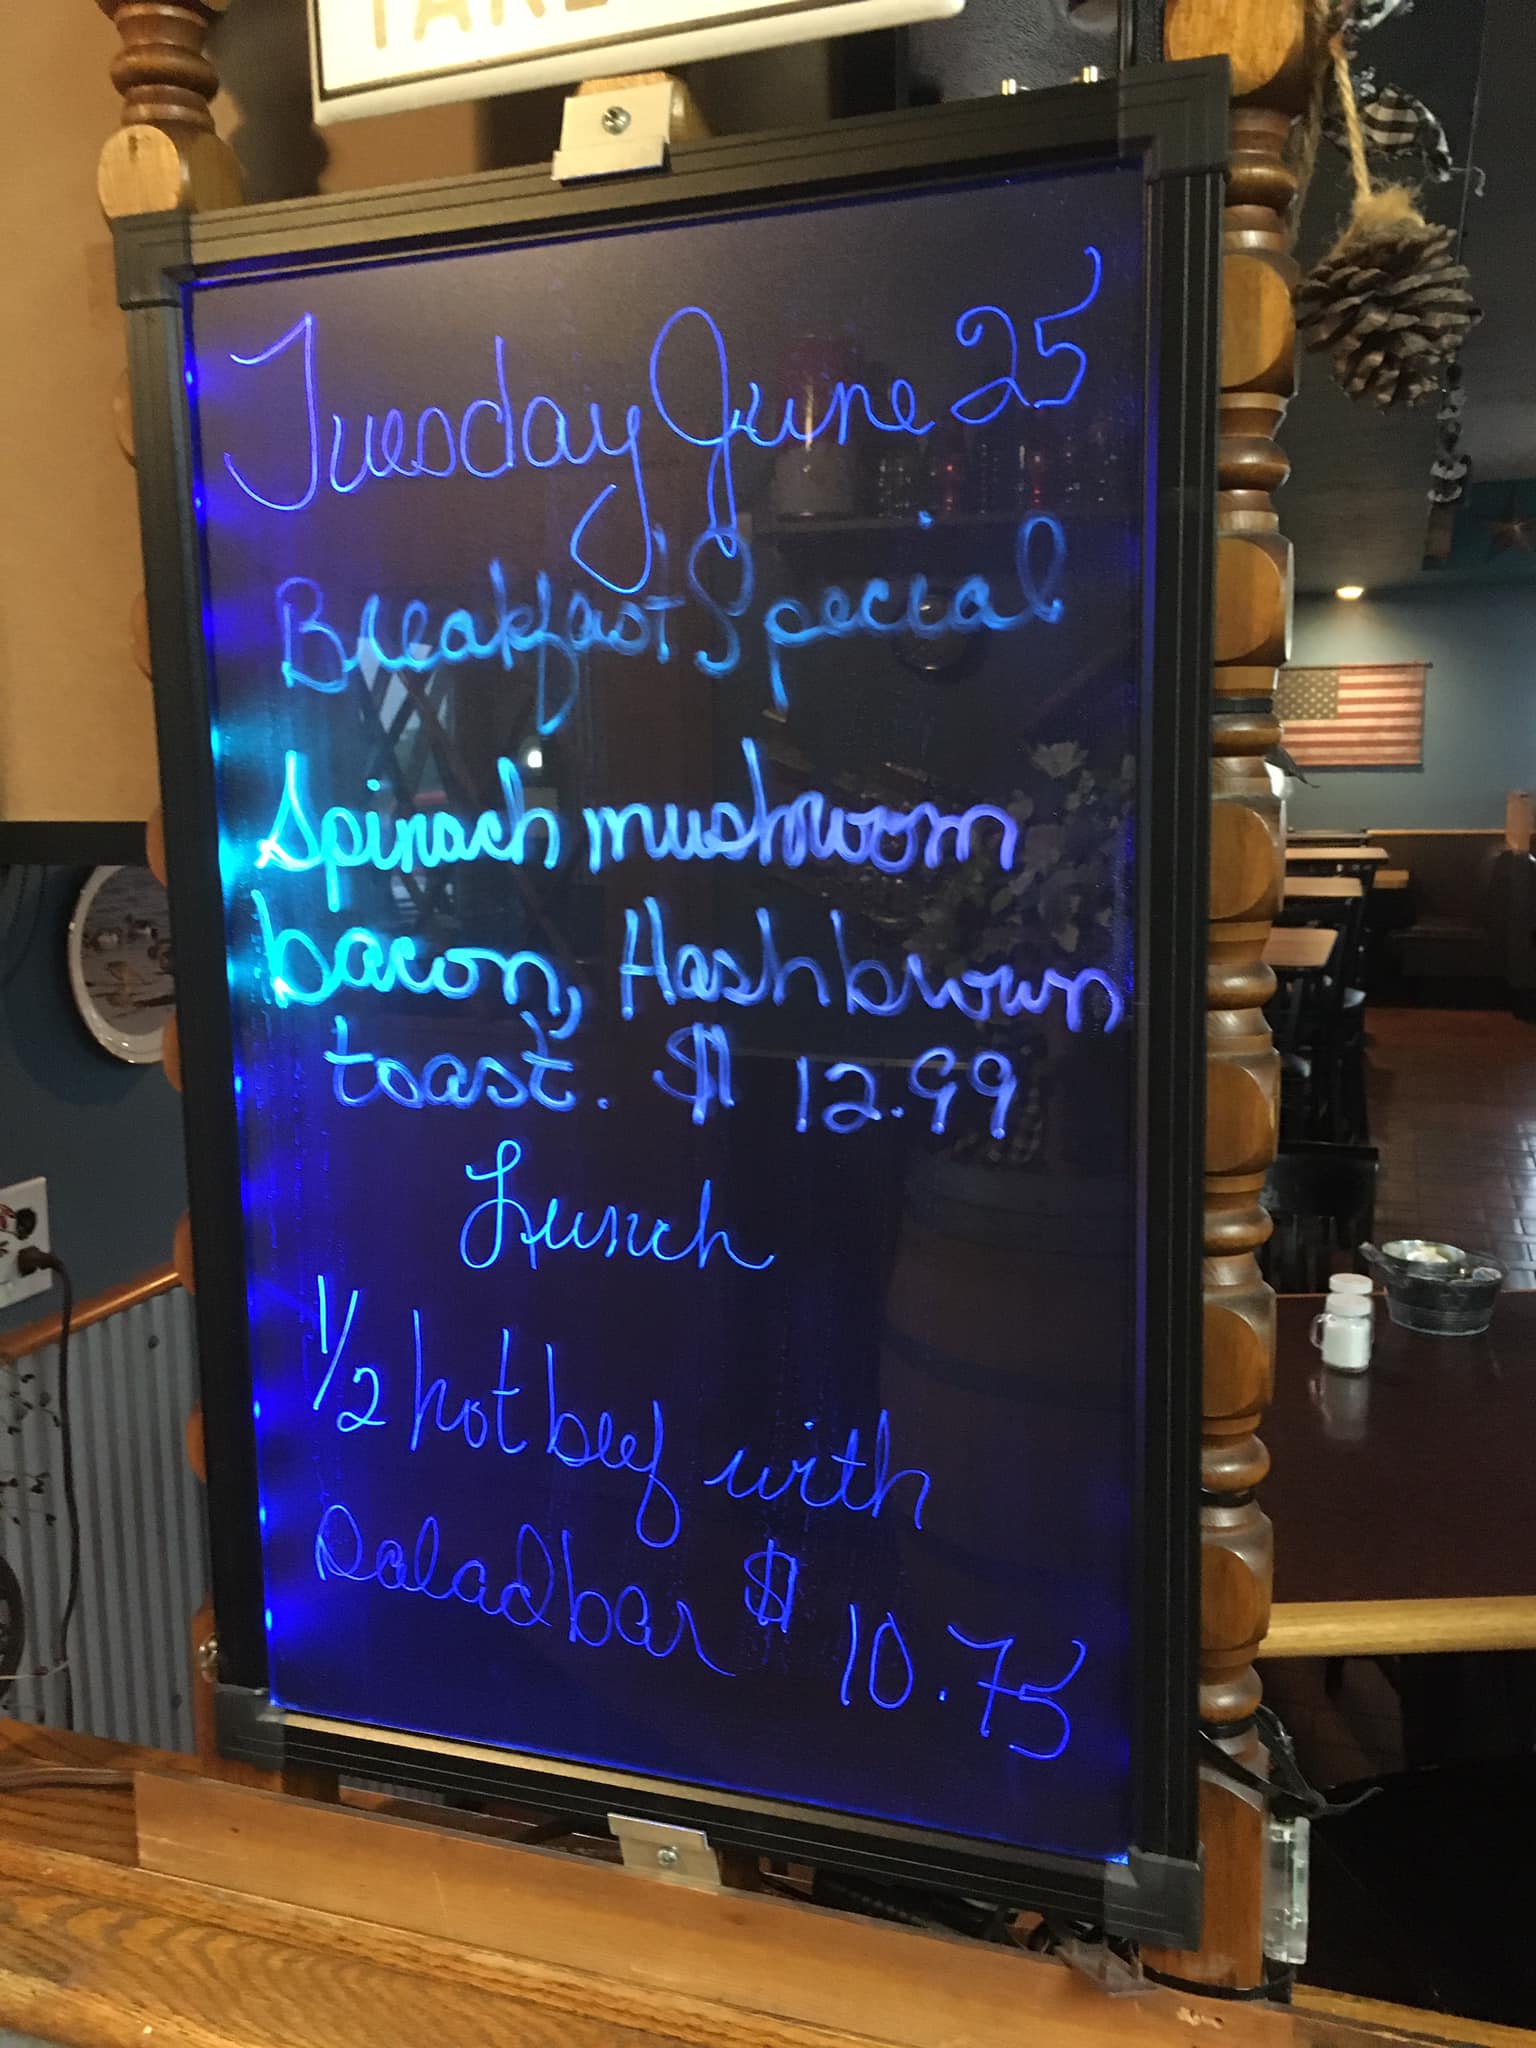 TAKE
Tuesday June 25
Breakfast Special
Spinach mushroom
bacon, Hashbrown
toast. $ 12.99
Lunch
1/2 hot beef with
Saladbar $ 10.75